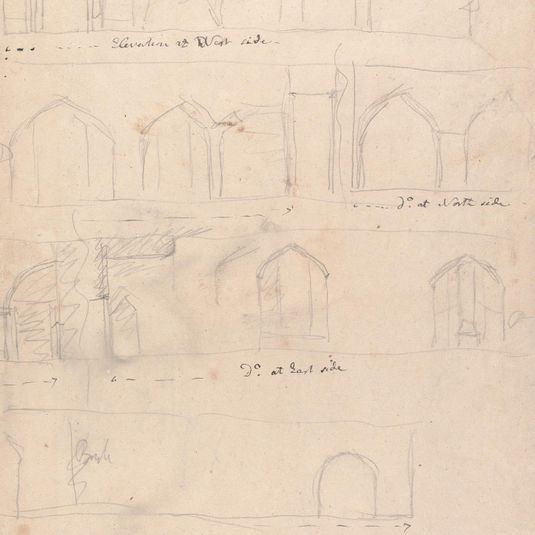 Elevation at West side
Do. at North side
Do. at East side